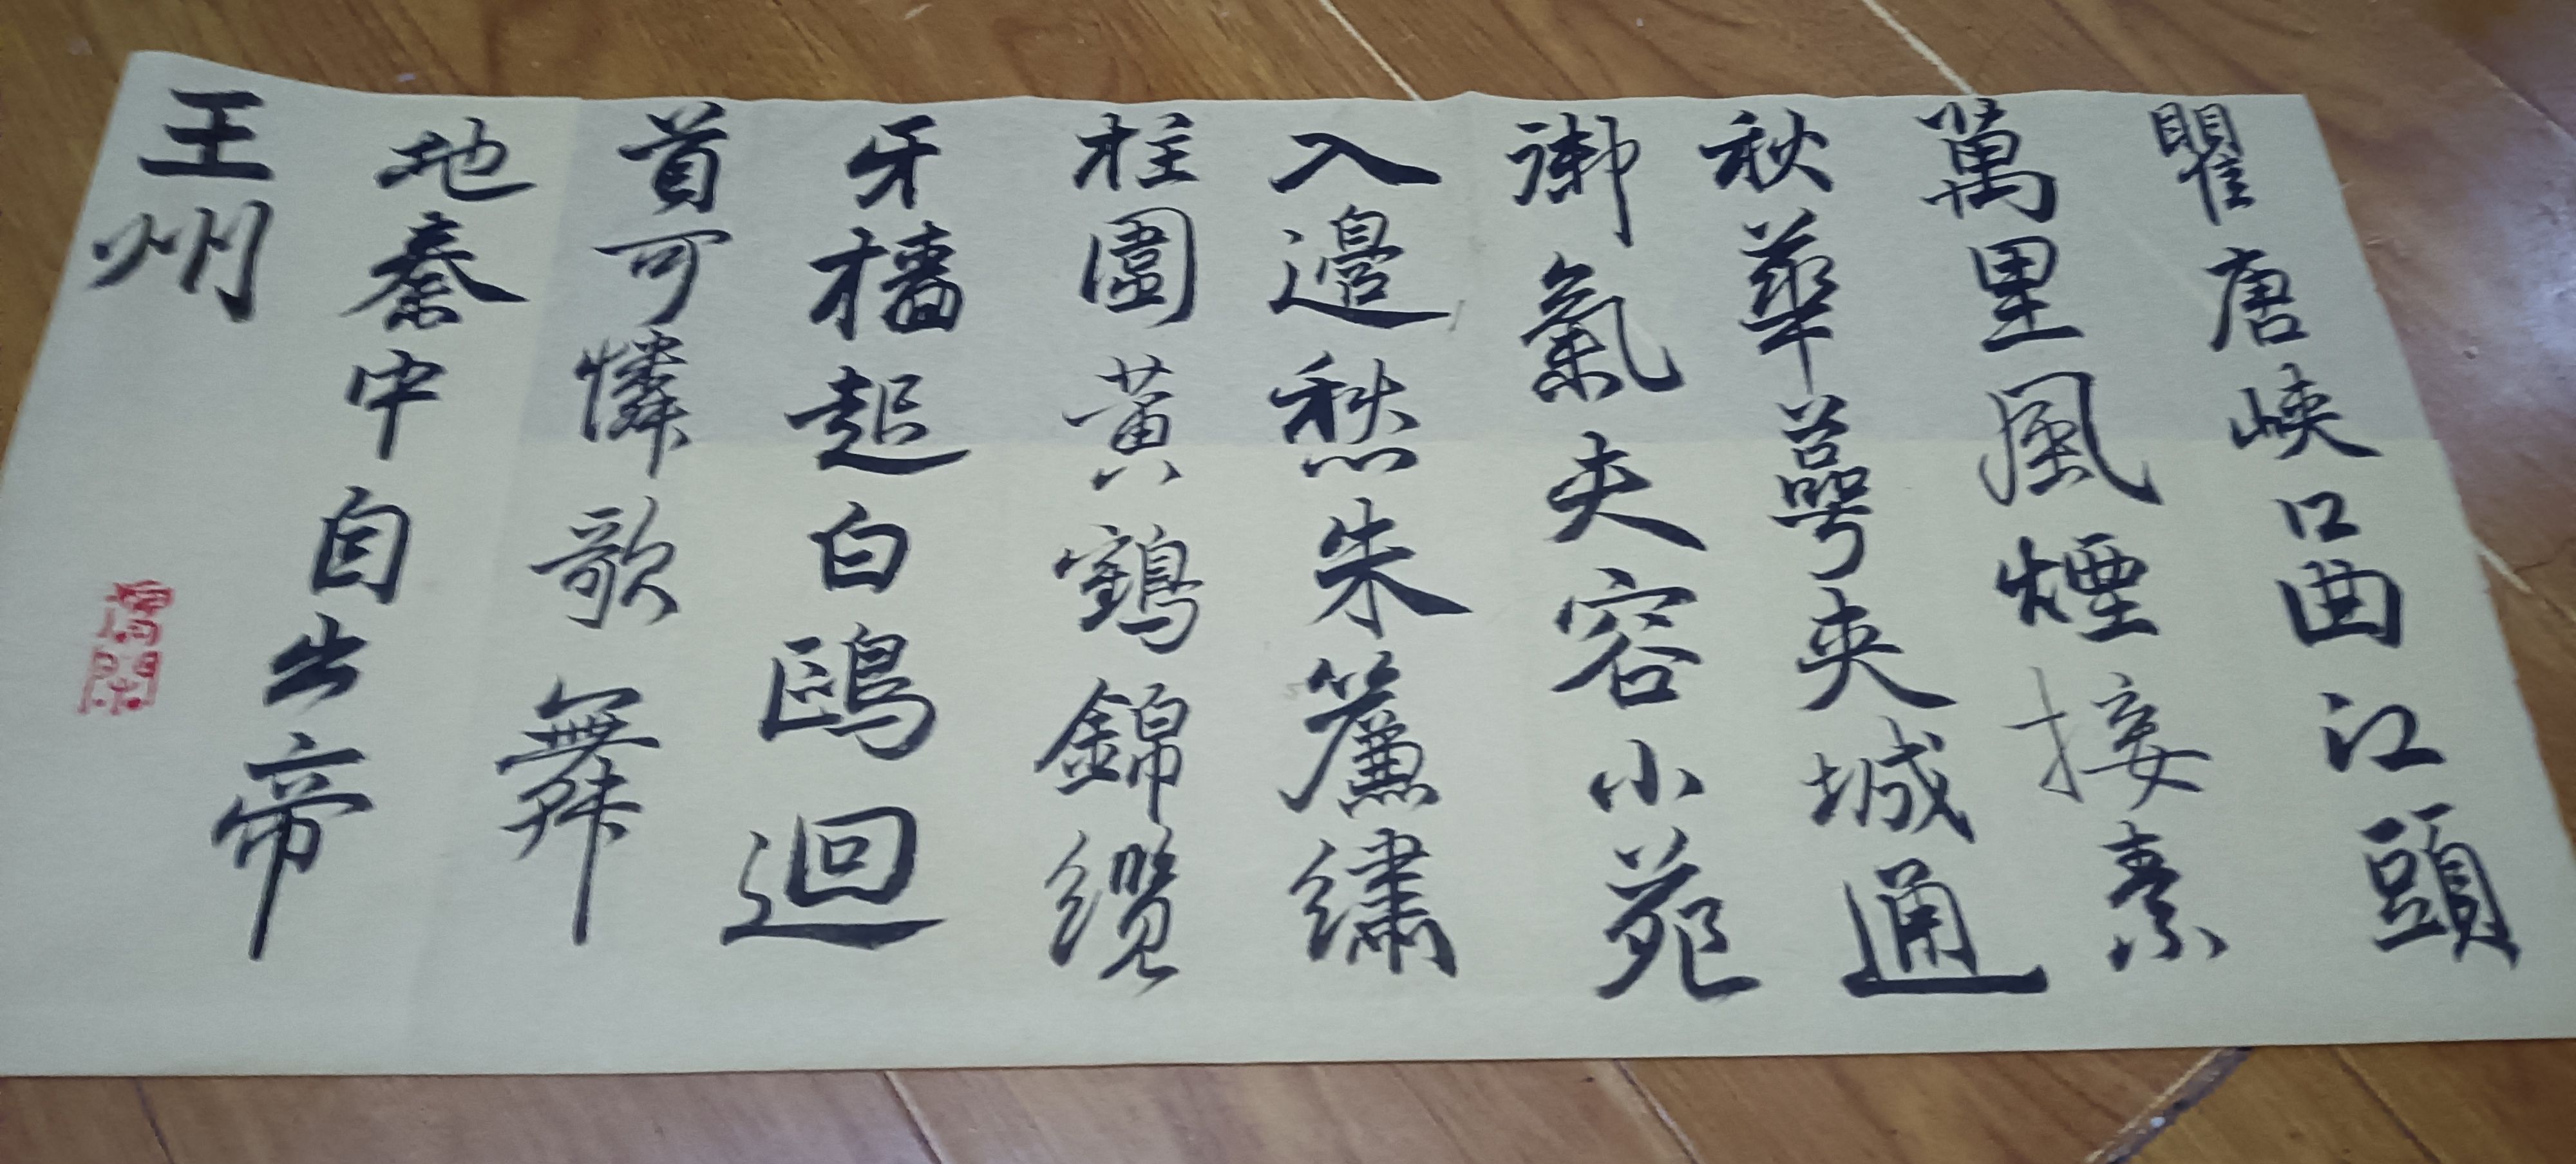 瞿唐峽口曲江頭
萬里風煙接素
秋華萼夾城通
御氣夫容小苑
入邊愁朱簾繡
柱圍黃鶴錦纜
牙檣起白鷗迴
首可憐歌舞
地秦中自出帝
王州